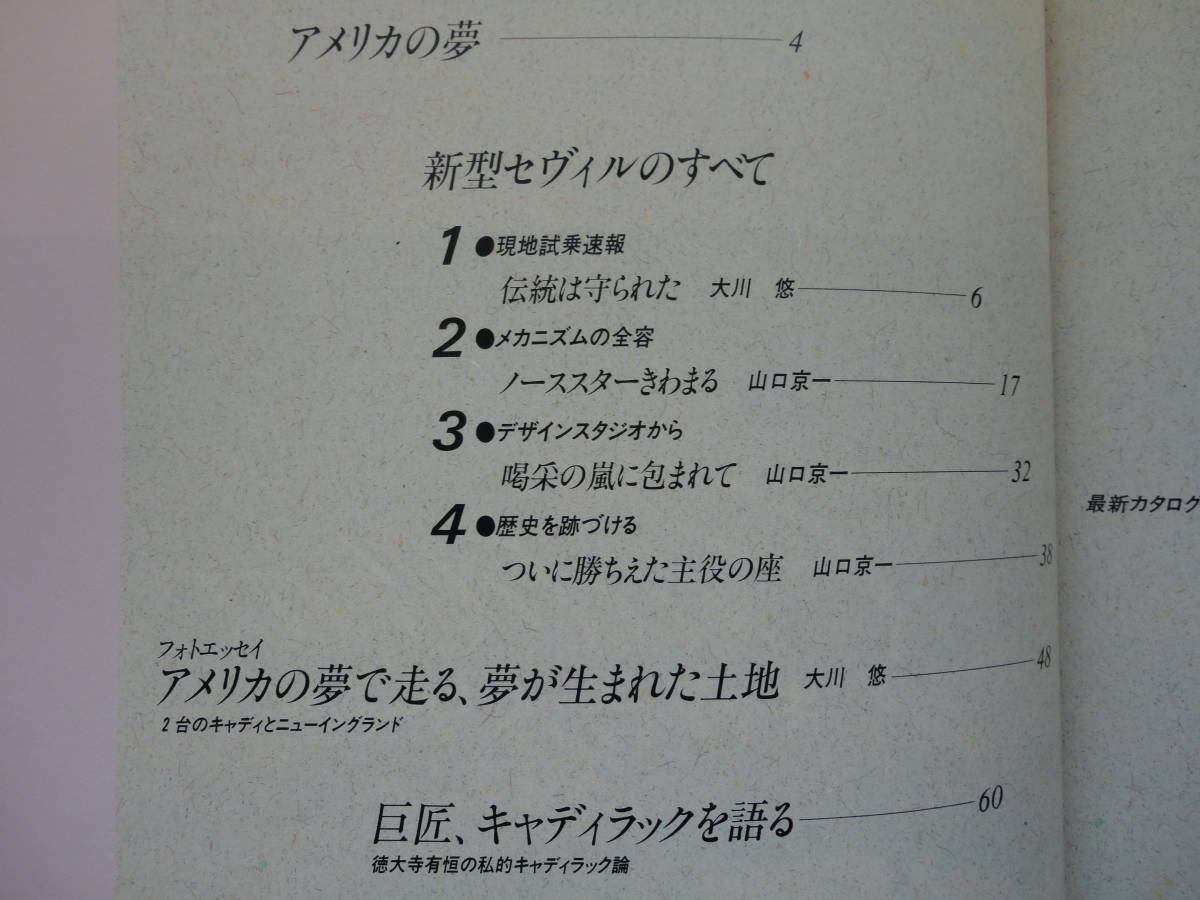 アメリカの夢 4
新型セヴィルのすべて
1 ●現地試乗速報
伝統は守られた 大川 悠 6
2 ●メカニズムの全容
ノーススターきわまる 山口京一 17
3 ●デザインスタジオから
喝采の嵐に包まれて 山口京一 32
4 ●歴史を跡づける
ついに勝ちえた主役の座 山口京一 38
フォトエッセイ
アメリカの夢で走る、夢が生まれた土地 大川 悠 48
2台のキャディとニューイングランド
巨匠、キャディラックを語る 60
徳大寺有恒の私的キャディラック論
最新カタログ